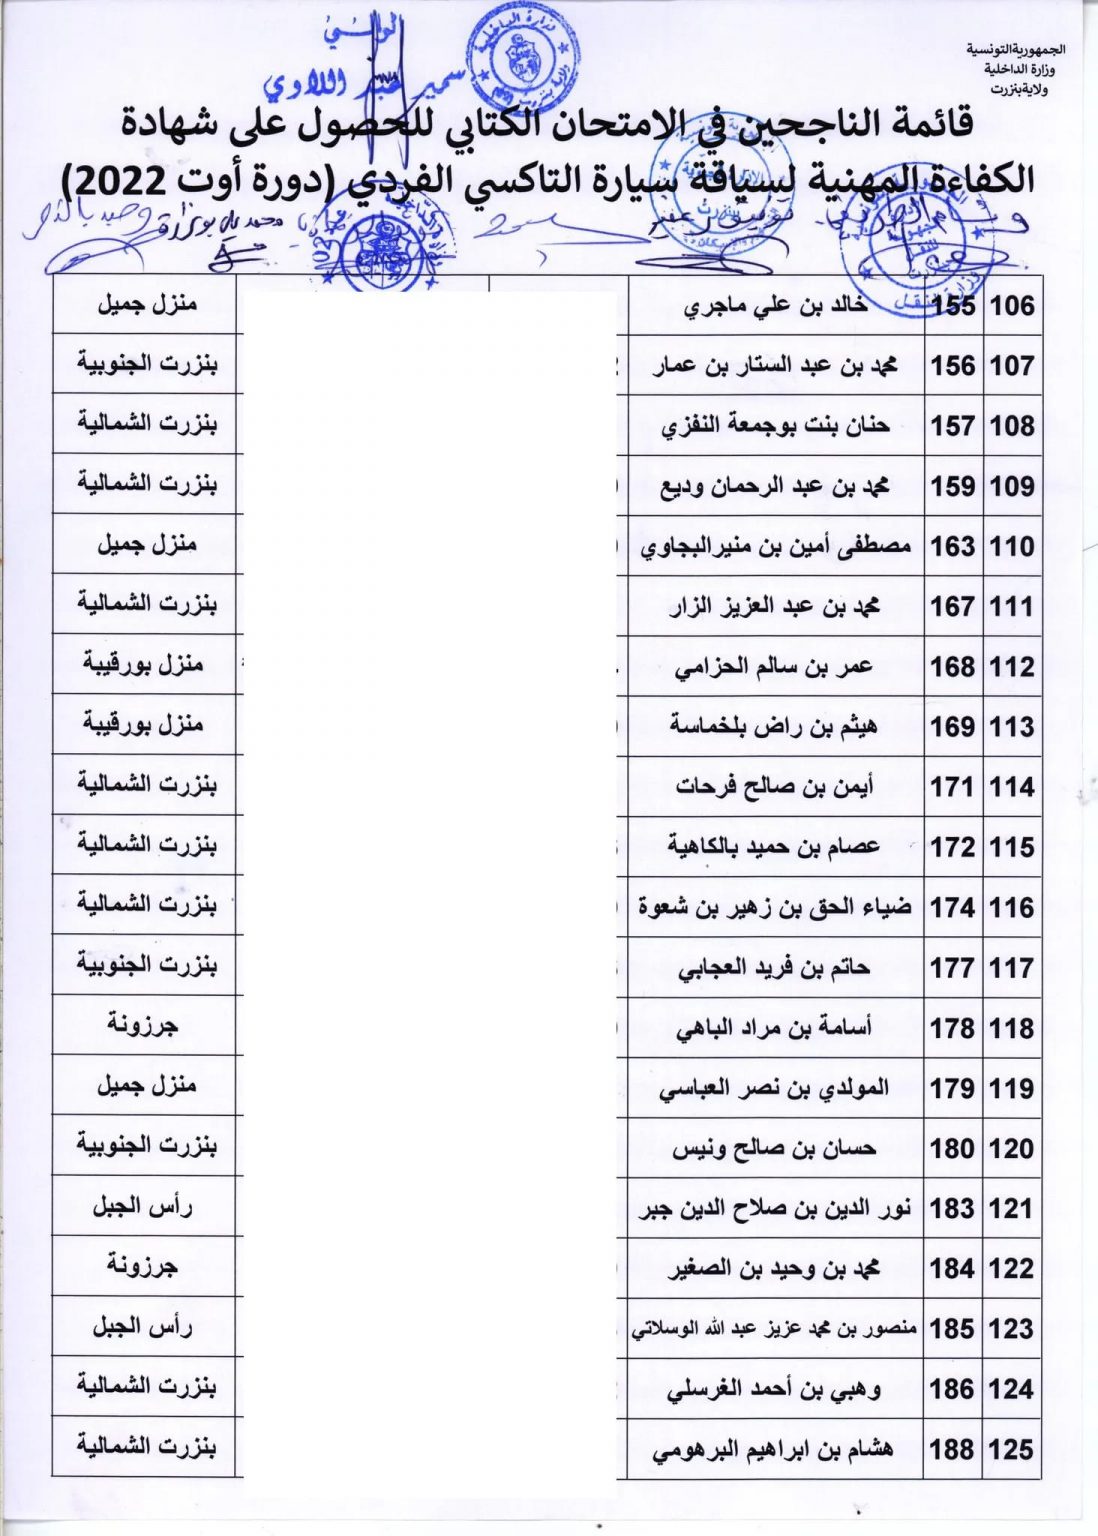 الجمهورية التونسية
وزارة الداخلية
ولاية بنزرت
الوالي
سمير عبد اللاوي
قائمة الناجحين في الامتحان الكتابي للحصول على شهادة
الكفاءة المهنية لسياقة سيارة التاكسي الفردي (دورة أوت 2022)
106 155 خالد بن علي ماجري منزل جميل
107 156 محمد بن عبد الستار بن عمار بنزرت الجنوبية
108 157 حنان بنت بوجمعة النفزي بنزرت الشمالية
109 159 محمد بن عبد الرحمان وديع بنزرت الشمالية
110 163 مصطفى أمين بن منيرالبجاوي منزل جميل
111 167 محمد بن عبد العزيز الزار بنزرت الشمالية
112 168 عمر بن سالم الحزامي منزل بورقيبة
113 169 هيثم بن راض بلخماسة منزل بورقيبة
114 171 أيمن بن صالح فرحات بنزرت الشمالية
115 172 عصام بن حميد بالكاهية بنزرت الشمالية
116 174 ضياء الحق بن زهير بن شعوة بنزرت الشمالية
117 177 حاتم بن فريد العجابي بنزرت الجنوبية
118 178 أسامة بن مراد الباهي جرزونة
119 179 المولدي بن نصر العباسي منزل جميل
120 180 حسان بن صالح ونيس بنزرت الجنوبية
121 183 نور الدين بن صلاح الدين جبر رأس الجبل
122 184 محمد بن وحيد بن الصغير جرزونة
123 185 منصور بن محمد عزيز عبد الله الوسلاتي رأس الجبل
124 186 وهبي بن أحمد الغرسلي بنزرت الشمالية
125 188 هشام بن ابراهيم البرهومي بنزرت الشمالية